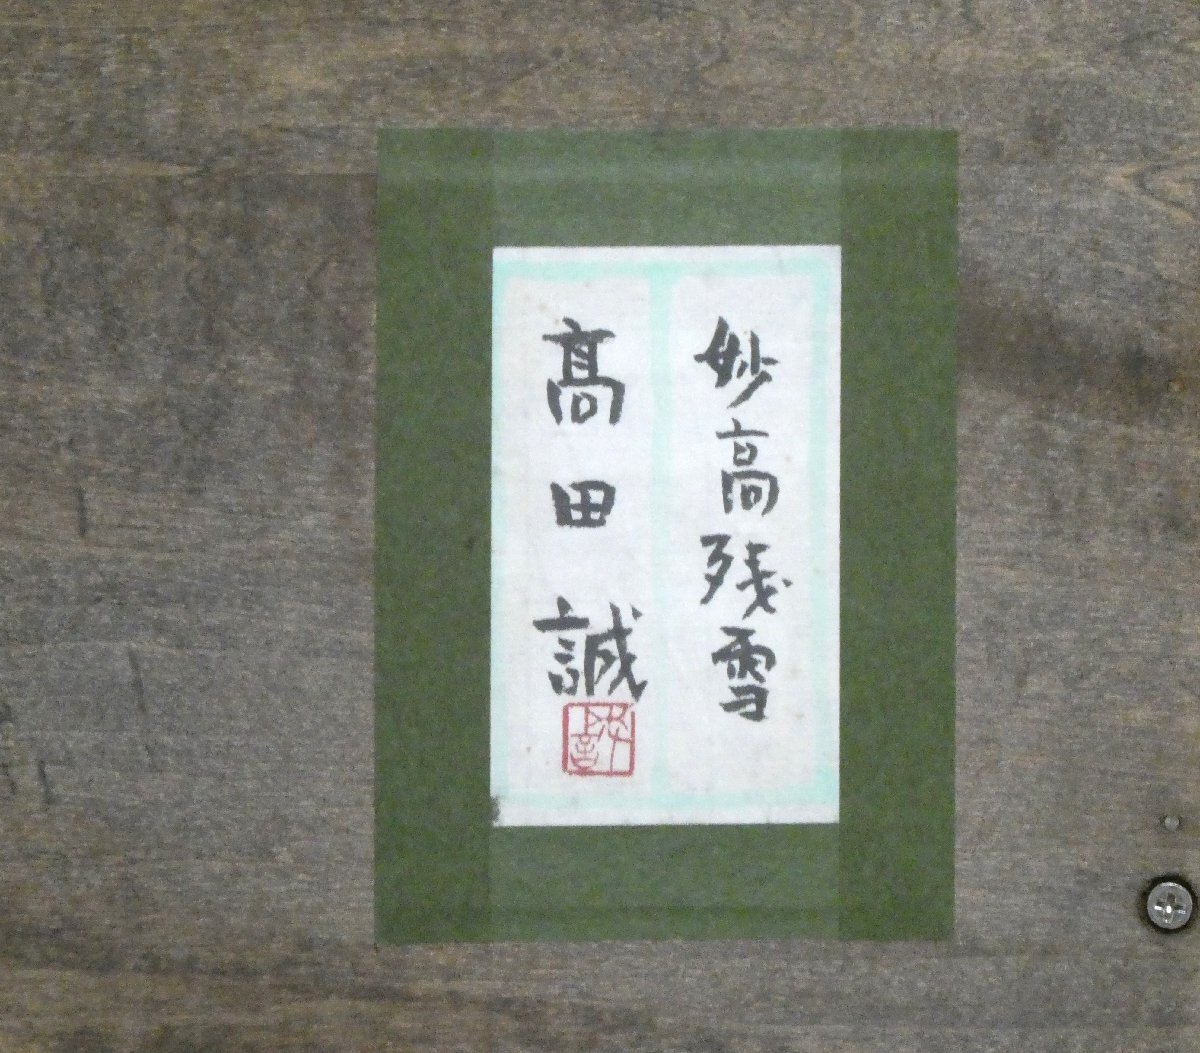 妙高残雪
髙田誠